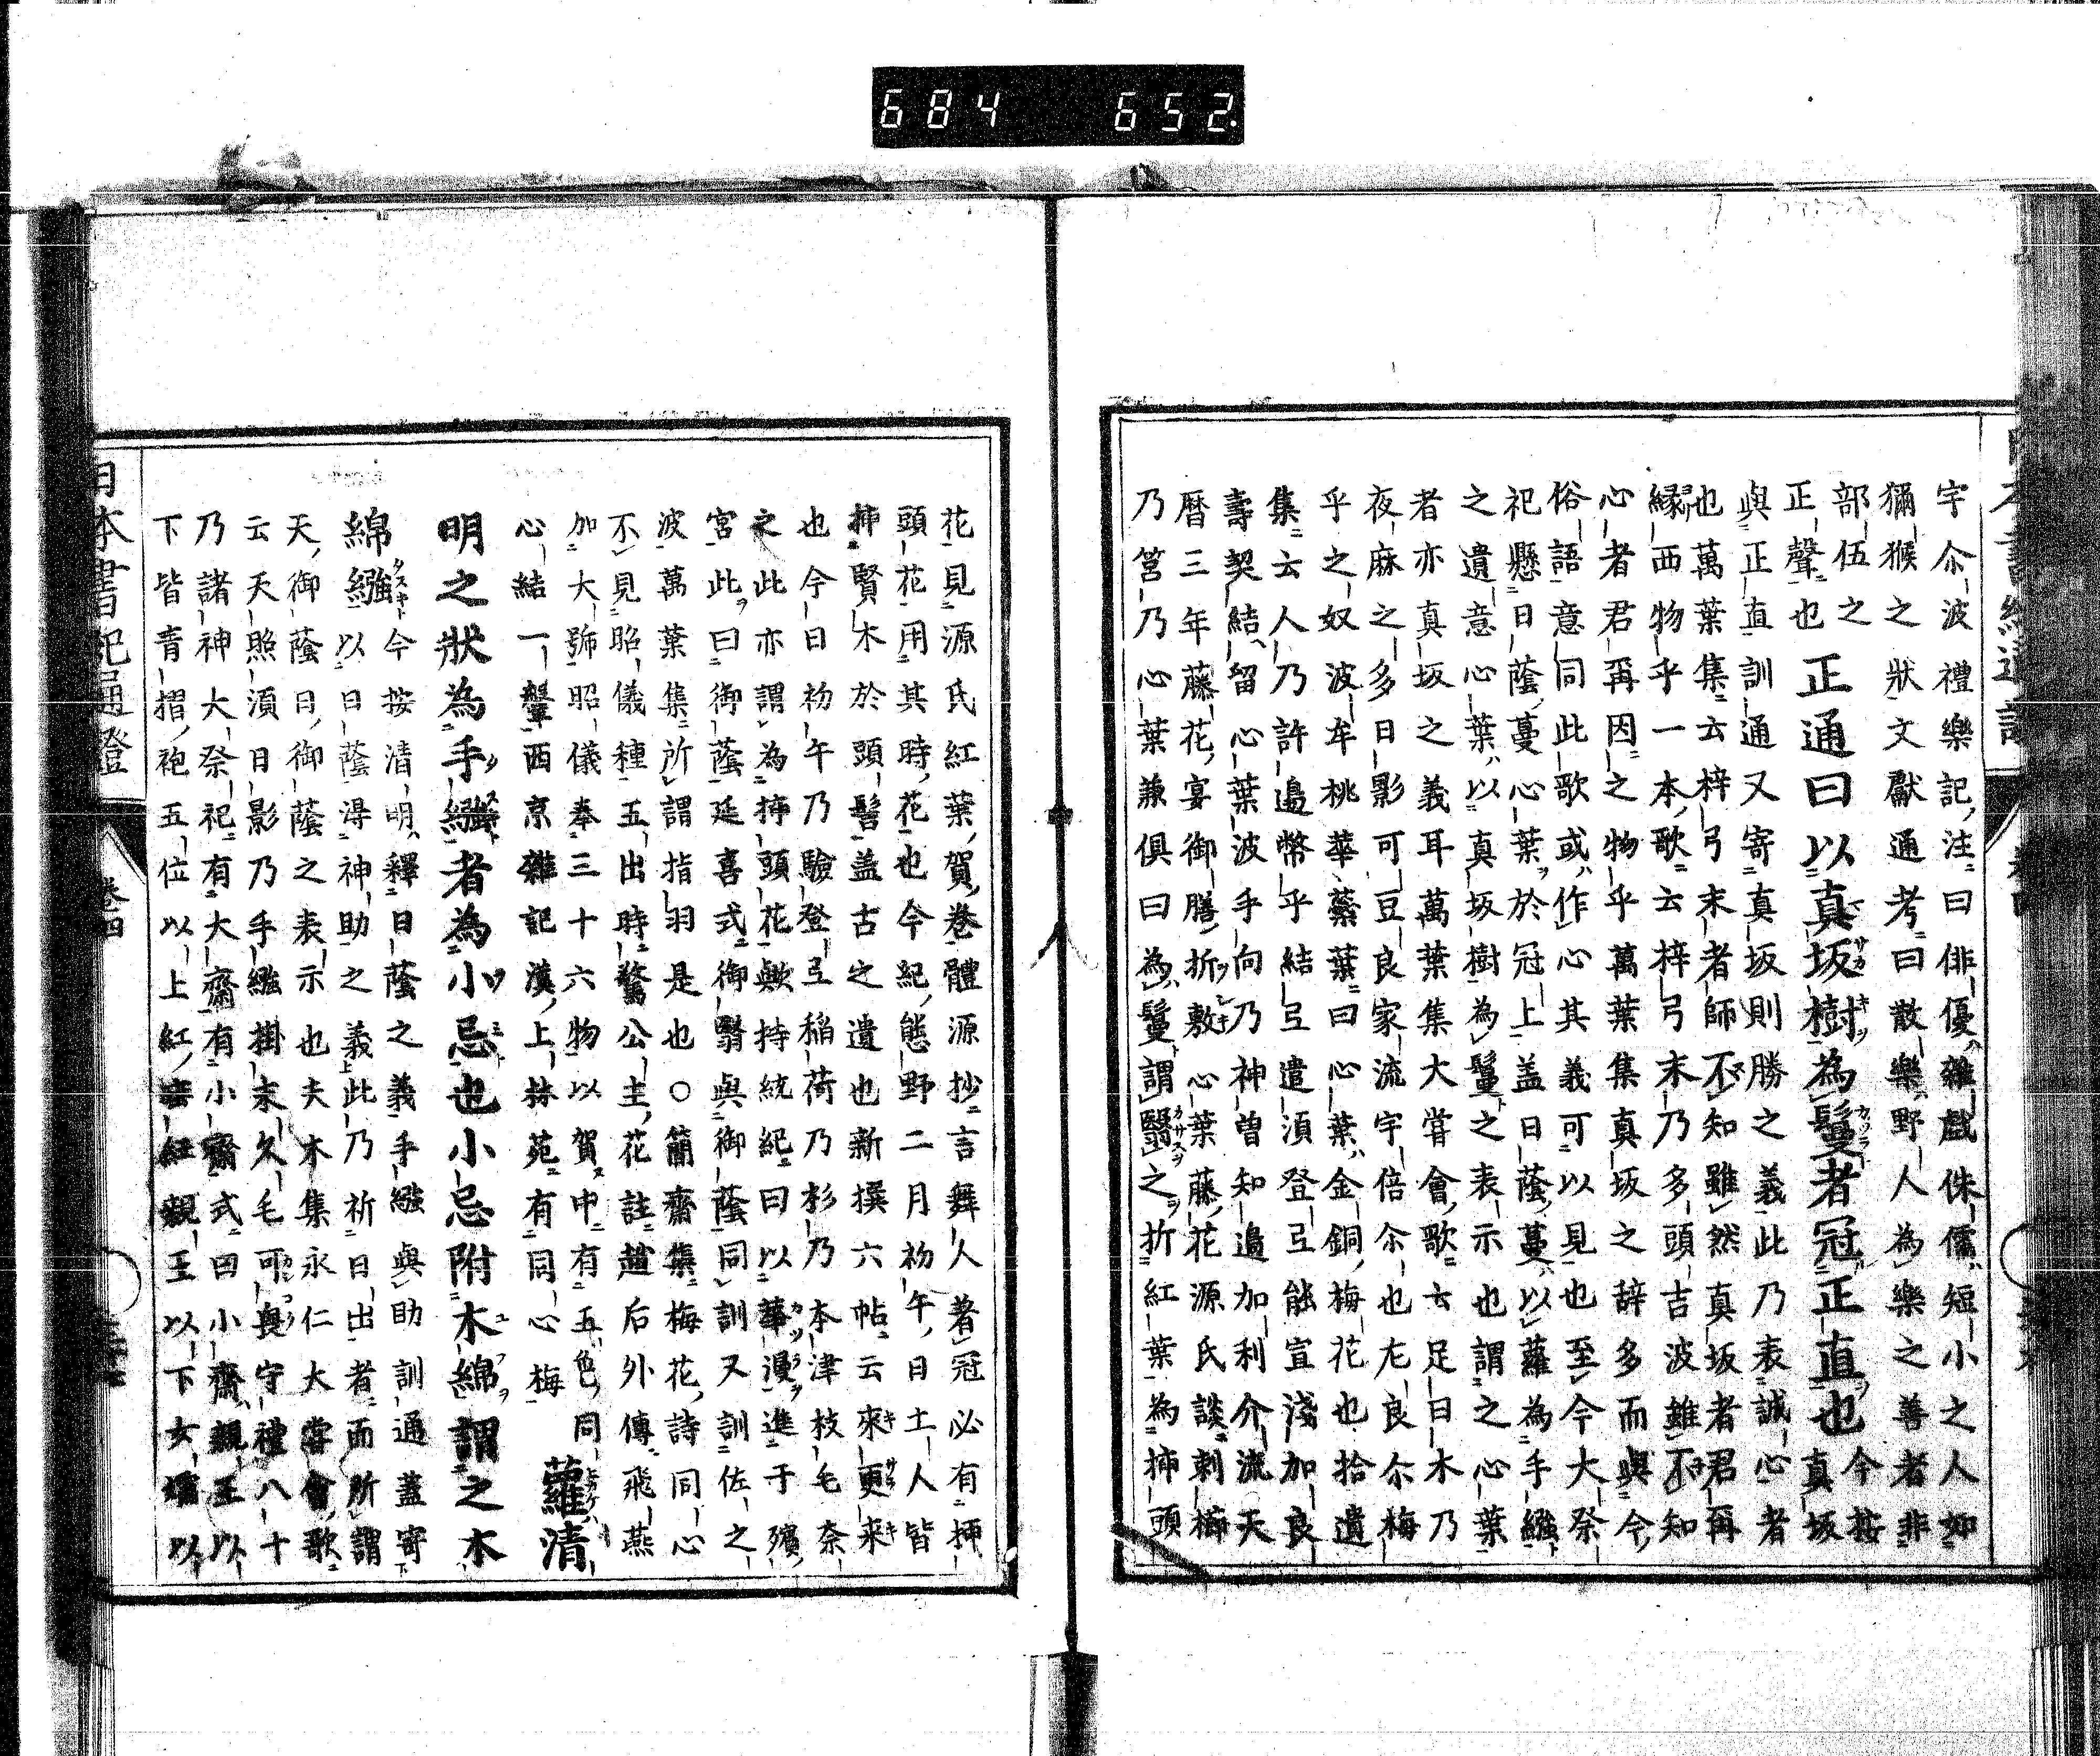 684 652
宇尒波禮樂記注曰俳優雜戲侏儒短小之人如
獼猴之狀文獻通考曰散樂野人為樂之善者非
部伍之
正聲也
正通曰以真坂樹為鬘者冠正直也
今按真坂
與正直訓通又寄真坂則勝之義此乃表誠心者
也萬葉集云梓弓末者師不知雖然真坂者君再
縁西物乎一本歌云梓弓末乃多頭吉波雖不知
心者君再因之物乎萬葉集真坂之辞多而與今
俗語意同此歌或作心其義可以見也至今大祭
祀懸日蔭蔓心葉於冠上盖日蔭蔓以蘿為手繦
之遺意心葉以真坂樹為鬘之表示也謂之心葉
者亦真坂之義耳萬葉集大甞會歌云足日木乃
夜麻之多日影可豆良家流宇倍尒也尨良尒梅
乎之奴波牟桃華蘂葉曰心葉金銅梅花也拾遺
集云人乃許邉幣乎結弖遣湏登弖能宣淺加良
壽契結留心葉波手向乃神曽知邉加利介流天
暦三年藤花宴御膳折敷心葉藤花源氏談刺櫛
乃筥乃心葉兼俱曰為鬘謂翳之折紅葉為挿頭
花見源氏紅葉賀卷體源抄言舞人著冠必有挿
頭花用其時花也今紀熊野二月初午日土人皆
挿賢木於頭髻盖古之遺也新撰六帖云來更來
也今日初午乃驗登弖稲荷乃杉乃本津枝毛奈
之此亦謂為挿頭花歟持統紀曰以華漫進于殯
宮此曰御蔭延喜式御翳與御蔭同訓又訓佐之
波萬葉集所謂指羽是也○簡齋集梅花詩同心
不見昭儀種五出時驚公主花註趙后外傳飛燕
加大號昭儀奉三十六物以賀申有五色同
心結一盤西京雜記漢上林苑有同心梅
蘿清
明之狀為手繦者為小忌也小忌附木綿謂之木
綿繦
今按清明釋日蔭之義手繦與助訓通蓋寄
以日蔭得神助之義此乃祈日出者而所謂
天御蔭日御蔭之表示也夫木集永仁大甞會歌
云天照湏日影乃手繦掛末久毛可畏守禮八十
乃諸神大祭祀有大齋有小齋式曰小齋親王以
下皆青摺袍五位以上紅親王以下女孺以
日本書紀通證
卷四